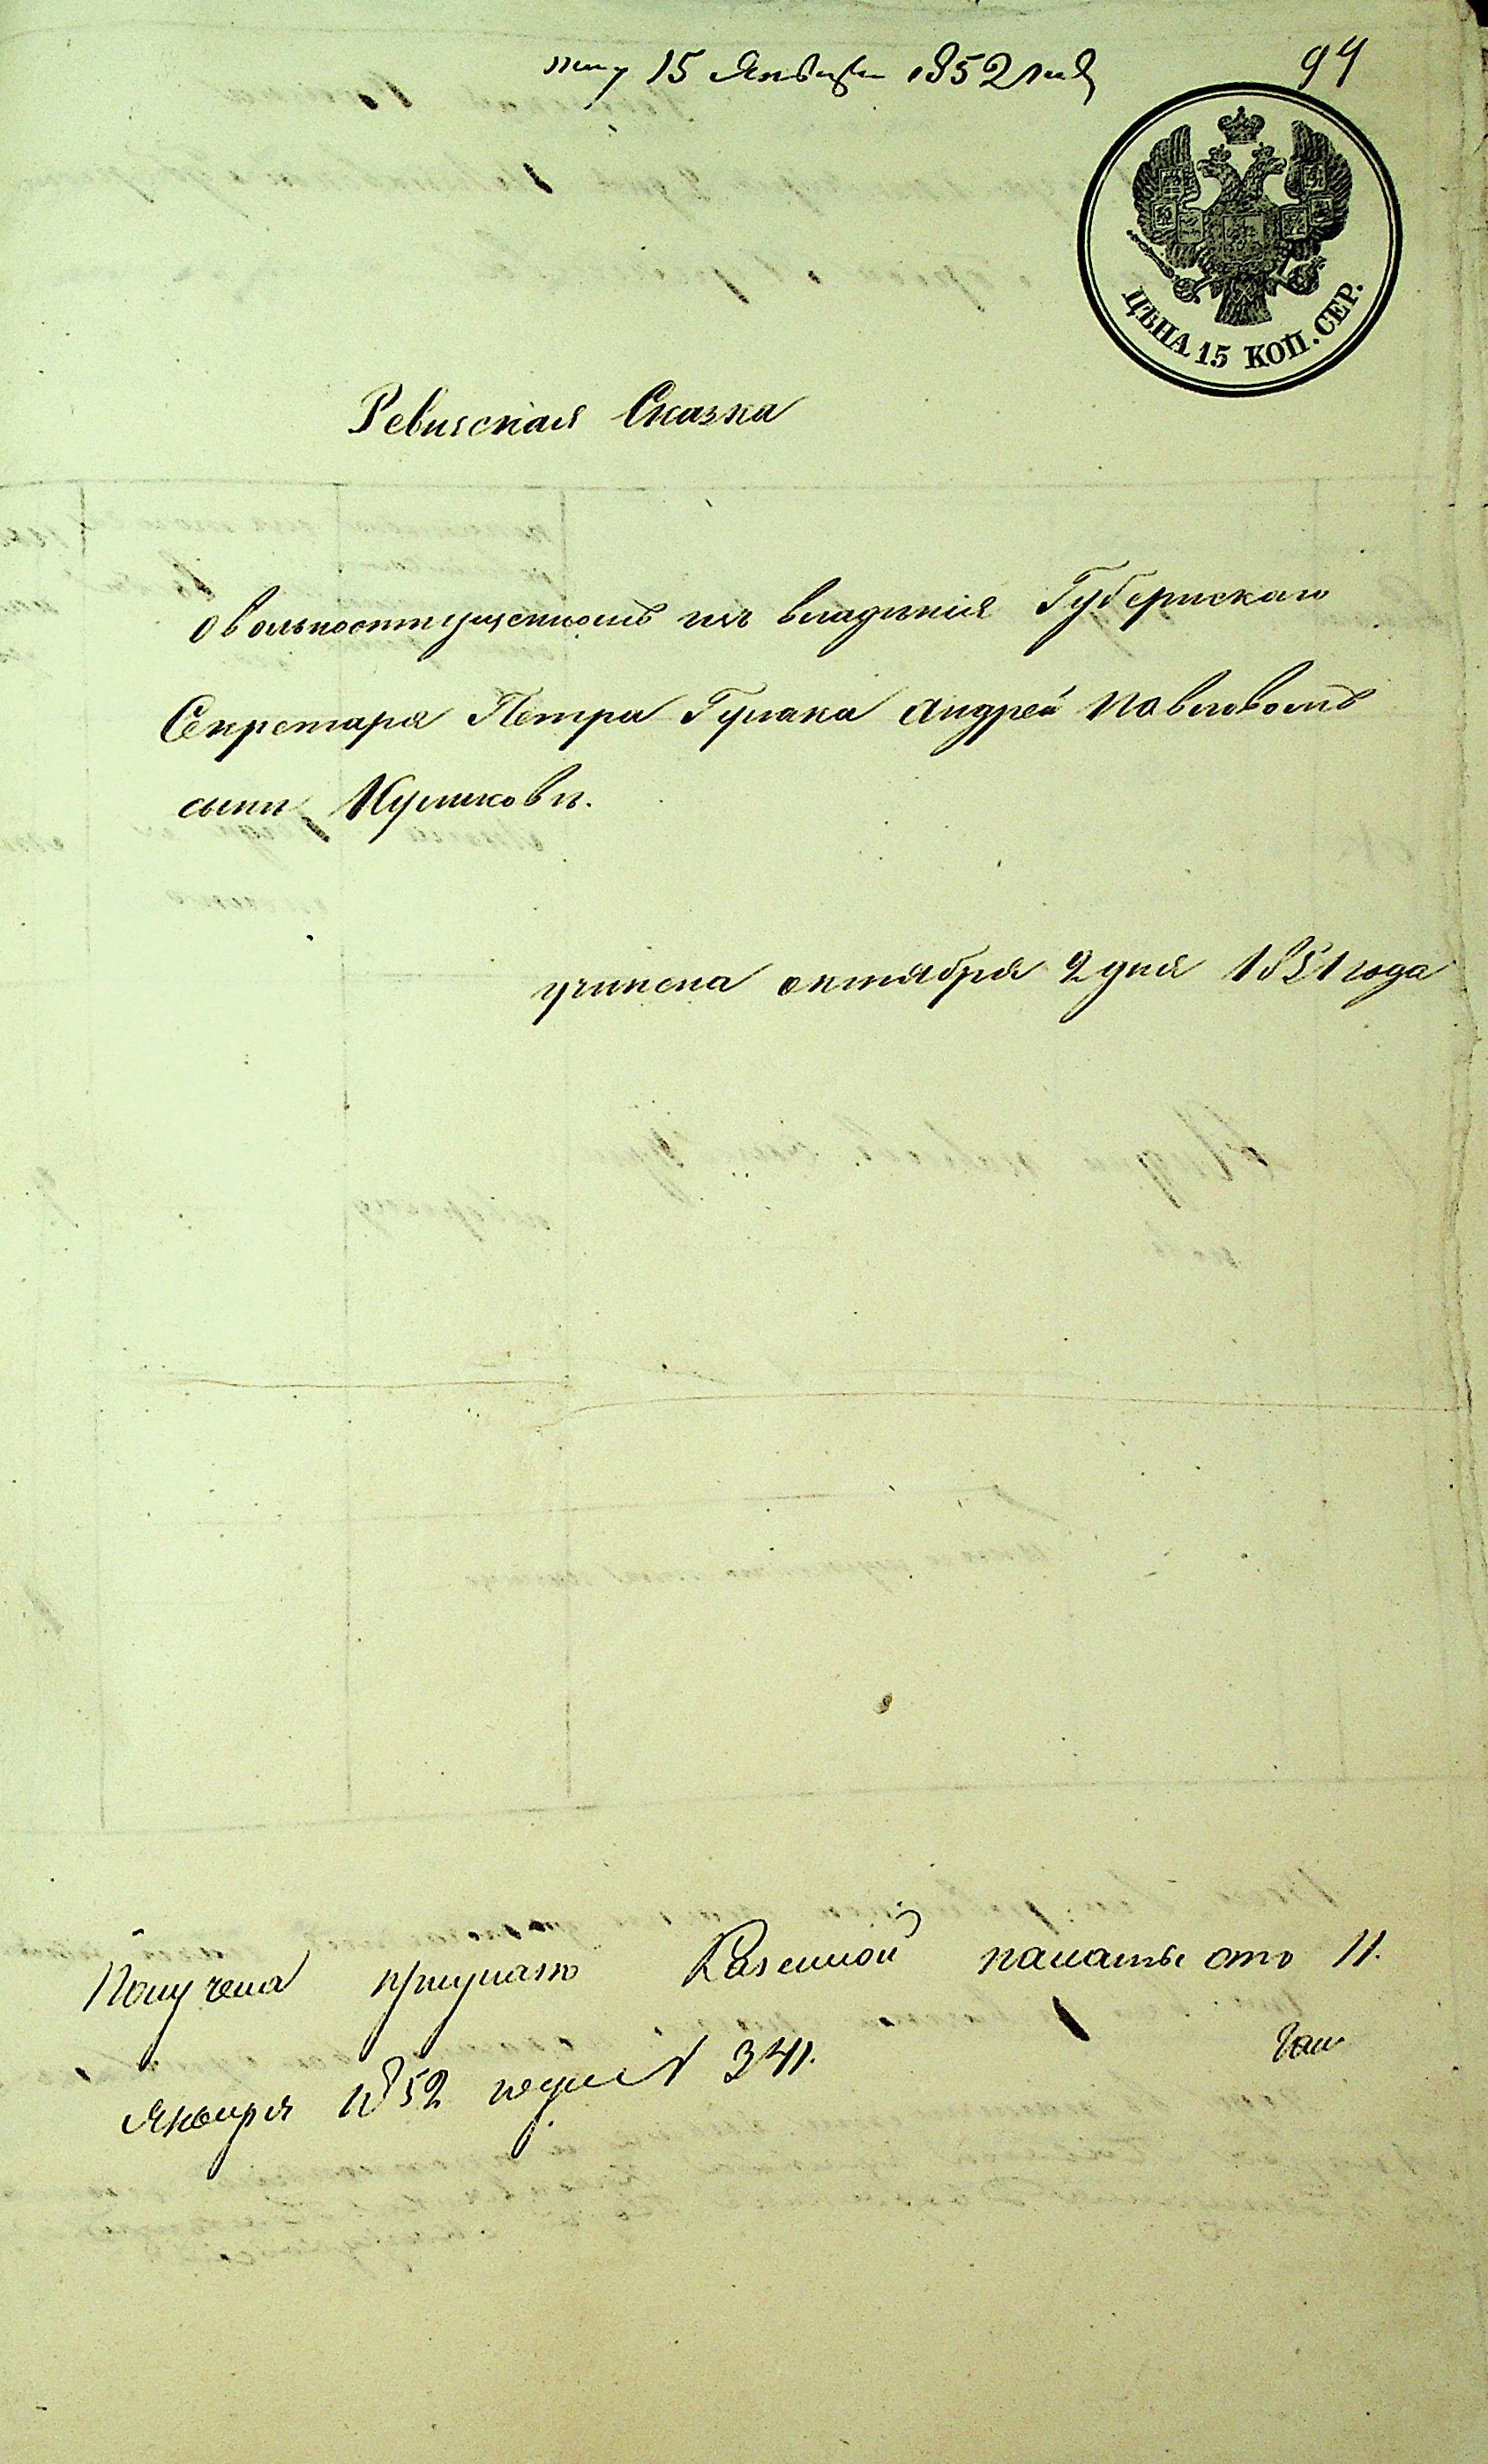 15 Января 1852 год
94
ЦѢНА 15 КОП. СЕР.
Ревизская Сказка
о вольноотпущенномъ изъ владѣнія Губернскаго
Секретаря Петра Гулака Андрей Павловомъ
сынѣ Куликовѣ.
учинена октября 2 дня 1851 года
Получена при указѣ Казенной палаты отъ 11.
Января 1852 года N 341.